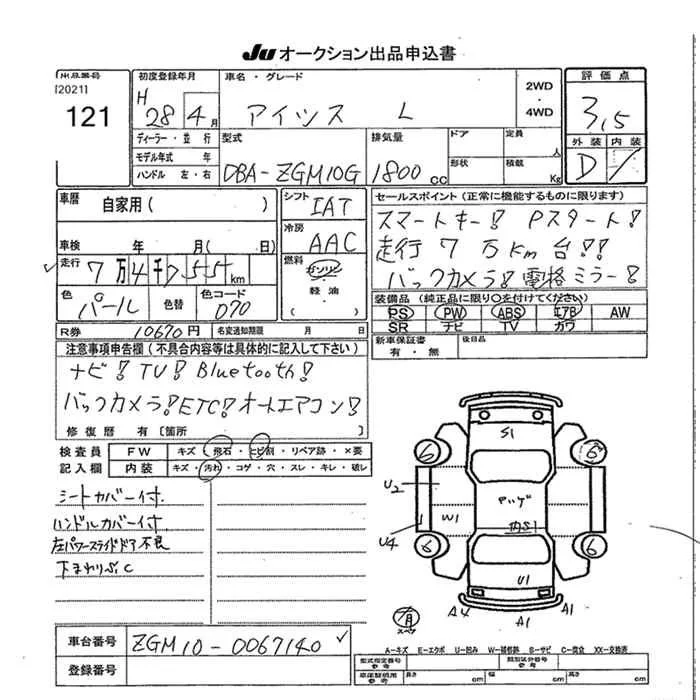 Ju オークション出品申込書
出品番号
[2021]
121
初度登録年月
H 28 4 月
車名・グレード
アイシス L
2WD
・
4WD
評価点
3,5
外装 内装
D
ディーラー・並行
モデル年式 年
ハンドル 左・右
型式
DBA-ZGM10G
排気量
1800 cc
ドア
定員 人
形状
積載 Kg
車歴
自家用( )
車検 年 月( 日)
走行
7万4千755 km
色
パール
色替
色コード
070
シフト
IAT
冷房
AAC
燃料
ガソリン
・
軽油
・
( )
セールスポイント(正常に機能するものに限ります)
スマートキー! Pスタート!
走行7万Km台!!
バックカメラ! 電格ミラー!
装備品(純正品に限り○を付けてください)
PS PW ABS エアB AW
SR ナビ TV カワ
R券 10670円 名変通知期限 月 日
新車保証書
有・無
後日品
注意事項申告欄(不具合内容等は具体的に記入して下さい)
ナビ! TV! Bluetooth!
バックカメラ! ETC! オートエアコン!
修復歴 有〔箇所 〕
検査員
記入欄
FW キズ・飛石・ヒビ割・リペア跡・×要
内装 キズ・汚れ・コゲ・穴・スレ・キレ・破レ
シートカバー付.
ハンドルカバー付.
左パワースライドドア不良
下まわりS,C
S1
6
6
U2
W1
U4
6
6
U1
A4
A1
A1
スペア
A-キズ E-エクボ U-凹み W-補修跡 S-サビ C-腐食 XX-交換済
車台番号
ZGM10-0067140
登録番号
型式指定番号
参考
類別区分番号
参考
車庫証明用
参考
長さ cm 幅 cm 高さ cm